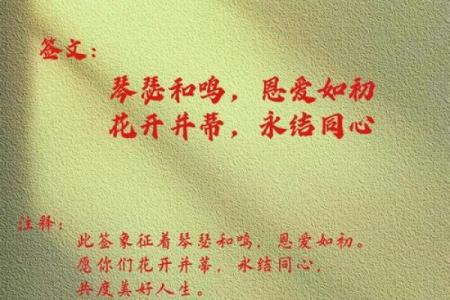 签文：
琴瑟和鸣，恩爱如初
花开并蒂，永结同心
注释：
此签象征着琴瑟和鸣，恩爱如初。
愿你们花开并蒂，永结同心，
共度美好人生。